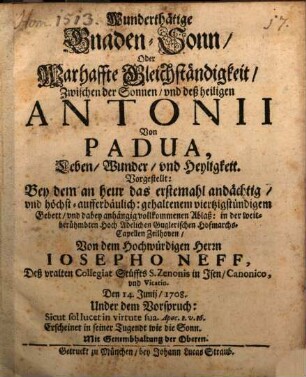 Hom. 1513.
17.
Wunderthätige
Gnaden-Sonn/
Oder
Warhaffte Gleichständigkeit/
Zwischen der Sonnen/ vnd deß heiligen
ANTONII
Von
PADUA,
Leben/ Wunder/ vnd Heyligkeit.
Vorgestellt:
Bey dem an heur das erstemahl andächtig/
vnd höchst-aufferbäulich: gehaltenem viertzigstündigem
Gebett/ vnd dabey anhängig vollkommenen Ablaß: in der weit-
berühmbten Hoch Adelichen Guglerischen Hofmarchs-
Capellen Zeilhoven/
Von dem Hochwürdigen Herrn
IOSEPHO NEFF,
Deß vralten Collegiat Stüffts S. Zenonis in Isen/ Canonico,
vnd Vicario.
Den 14. Junij/ 1708.
Under dem Vorspruch:
Sicut sol lucet in virtute sua. Apoc. 1. v. 16.
Erscheinet in seiner Tugendt wie die Sonn.
Mit Genembhaltung der Obern.
Getruckt zu München/ bey Johann Lucas Straub.